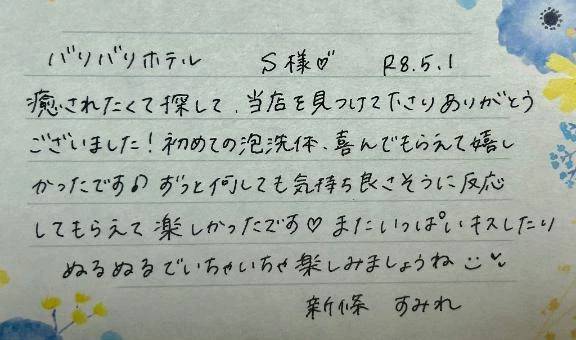 バリバリホテル S様♡ R8.5.1
癒されたくて探して、当店を見つけて下さりありがとう
ございました！初めての泡洗体、喜んでもらえて嬉し
かったです♪ ずっと何しても気持ち良さそうに反応
してもらえて楽しかったです♡ またいっぱいキスしたり
ぬるぬるでいちゃいちゃ楽しみましょうね
新條 すみれ